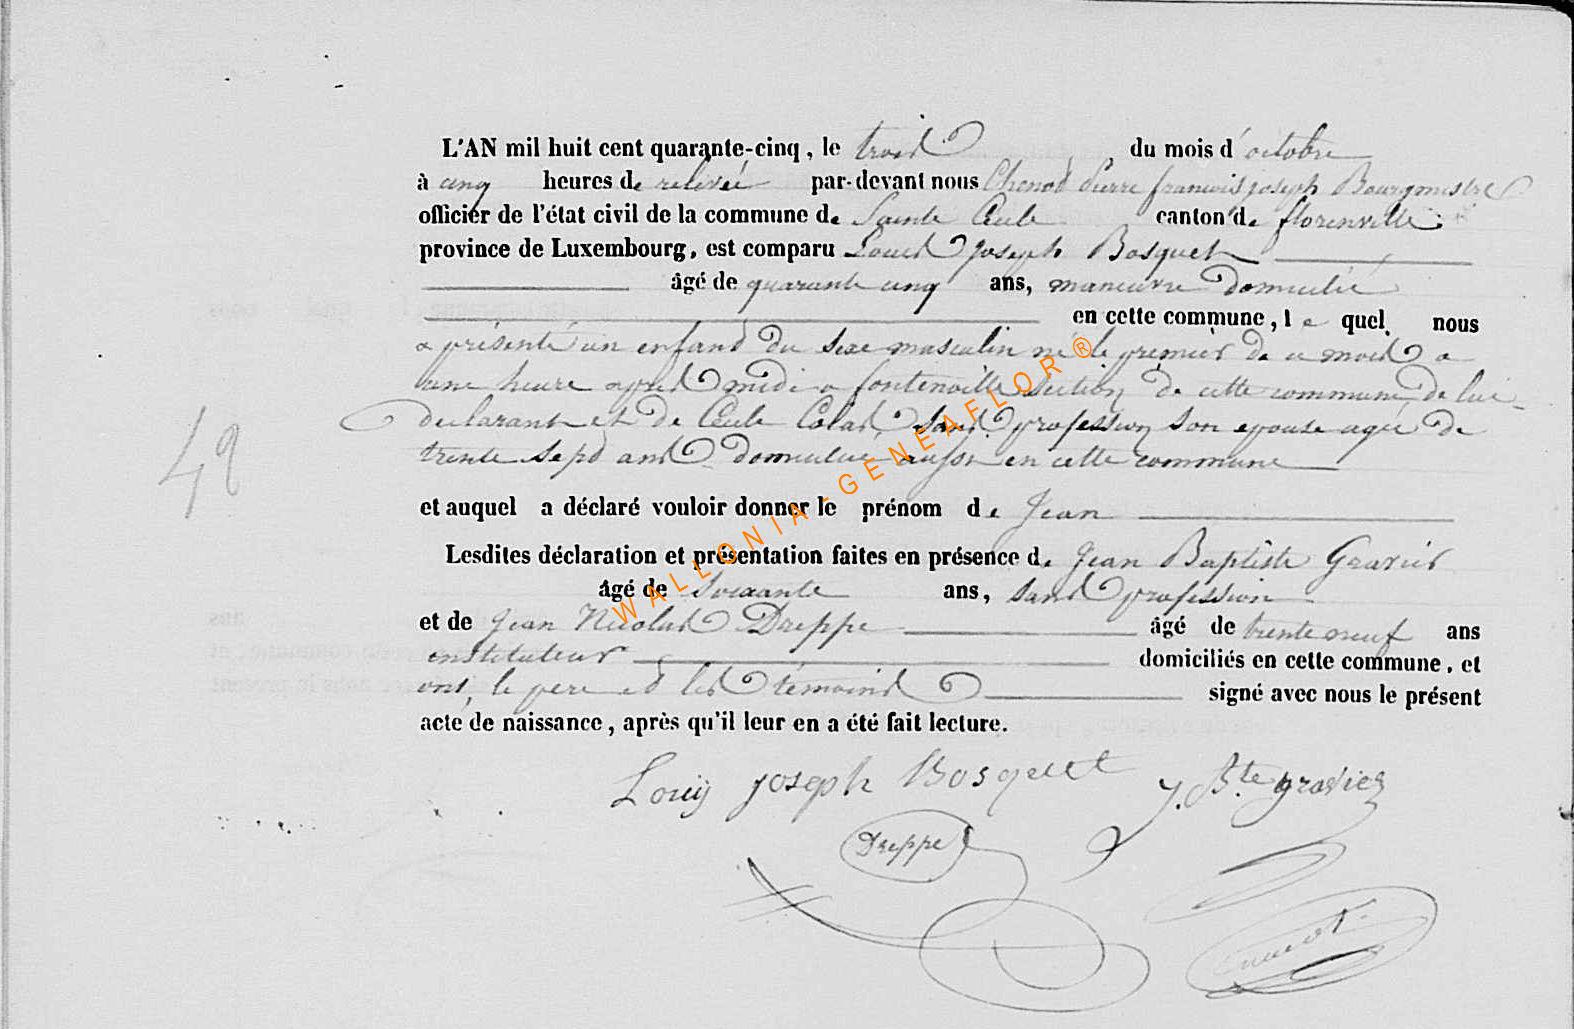 L'AN mil huit cent quarante-cinq, le trois du mois d'octobre
à cinq heures de relevée par-devant nous Chenot pierre francois joseph Bourgmestre
officier de l'état civil de la commune de Sainte Cecile canton de florenville
province de Luxembourg, est comparu Louis Joseph Bosquet
âgé de quarante cinq ans, manœuvre domicilié
en cette commune, le quel nous
a présenté un enfant du sexe masculin né le premier de ce mois a
une heure apres midi a fontenoille section de cette commune de lui
declarant et de Cecile Colas sans profession son epouse agée de
trente sept ans domiciliée aussi en cette commune
49
et auquel a déclaré vouloir donner le prénom de Jean
Lesdites déclaration et présentation faites en présence de Jean Baptiste Gravier
âgé de soixante ans, sans profession
et de Jean Nicolas Dreppe âgé de trente neuf ans
instituteur domiciliés en cette commune, et
ont, le pere et les témoins signé avec nous le présent
acte de naissance, après qu'il leur en a été fait lecture.
Louis joseph Bosquet J. Bte gravier
Dreppe
Chenot
WALLONIA-GENEAFLOR®